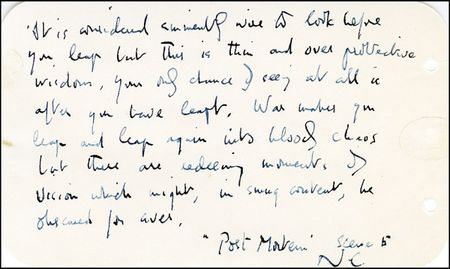 'It is considered eminently wise to look before
you leap but this is thin and over protective
wisdom, your only chance of seeing at all is
after you have leapt. War makes you
leap and leap again into bloody chaos
but there are redeeming moments of
vision which might, in smug content, be
obscured for ever.
"Post Mortem" Scene 5
N.C.